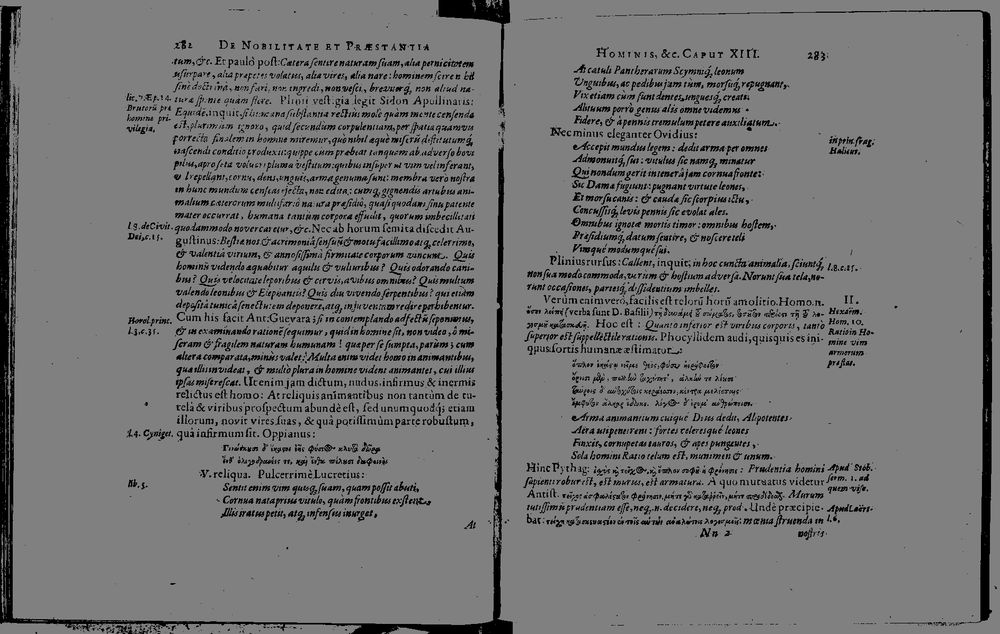 282 DE NOBILITATE ET PRÆSTANTIA
tum, &c. Et paulò post: Cætera sentire naturam suam, alia pernicitatem
usurpare, alia præpetes volatus, alia vires, alia nare: hominem scire nihil
sine doctrina, non fari, non ingredi, non vesci, breviterq́, non aliud na-
turæ sponte quam flere. Plinii vestigia legit Sidon Apollinaris:
Equidem, inquit, si humana substantia rectius mole quàm mente censenda
est, plurimum ignoro, quid secundum corpulentiam, per spatia quamvis
porrecta finalem in homine miremur, quo nihil æquè miserū destitutumq́,
nascendi conditio produxit: quippe cum præbeat tanquam ab adverso bovi
pilus, apro seta volucri pluma vestitum: quibus insuper ut vim vel inferant,
vel repellant, cornu, dens, unguis, arma genuina sunt: membra vero nostra
in hunc mundum censeas ejecta, non edita: cumq́, gignendis artubus ani-
malium cæterorum multifariò natura præsidiò, quasi quodam sinu patente
mater occurrat, humana tantùm corpora effudit, quorum imbecillitati
quodammodo novercaretur, &c. Nec ab horum semita discedit Au-
gustinus: Bestiæ nos & acrimoniâ sensuū & motu facillimo atq́, celerrimo,
& valentiâ virium, & annosissimâ firmitate corporum vincunt. Quis
hominū videndo æquabitur aquilis & vulturibus? Quis odorando cani-
bus? Quis velocitate leporibus & cervis, avibus omnibus? Quis multum
valendo leonibus & Elephantis? Quis diu vivendo serpentibus? qui etiam
depositâ tunicâ senectutem deponere, atq́, in juventam redire perhibentur.
Cum his facit Ant. Guevara; si in contemplando adfectū seponamus,
& in examinando rationē sequimur, quid in homine sit, non video, ô mi-
seram & fragilem naturam humanam! quæ per se sumpta, parùm; cum
altera comparata, minùs valet! Multa enim videt homo in animantibus,
quæ illis invideat, & multò plura in homine vident animantes, cui illius
ipsas miserescat. Ut enim jam dictum, nudus, infirmus & inermis
relictus est homo: At reliquis animantibus non tantùm de tu-
telâ & viribus prospectum abundè est, sed unumquodq́; etiam
illorum, novit vires suas, & quâ potissimùm parte robustum,
quâ infirmum sit. Oppianus:
V. reliqua. Pulcerrimè Lucretius:
Sentit enim vim quisq́, suam, quam possit abuti,
Cornua nata prius vitulo, quàm frontibus exstent,
Illis iratus petit, atq́, infensus inurget,
At
lib. 7. Ep. 14.
Brutorū præ
homine pri-
vilegia.
l. 8. de Civit.
Dei, c. 15.
Horol. princ.
l. 3. c. 35.
l. 4. Cyniget.
lib. 5.
HOMINIS, &c. CAPUT XIII. 283
At catuli Pantherarum Scymniq́, leonum
Unguibus, ac pedibus jam tùm, morsuq́, repugnant,
Vix etiam cùm sunt dentes, unguesq́, creati.
Alituum porrò genus aliis omne videmus
Fidere, & à pennis tremulum petere auxiliatum.
Nec minus eleganter Ovidius:
Accepit mundus legem: dedit arma per omnes
Admonuitq́, sui: vitulus sic namq, minatur
Qui nondum gerit in tenerâ jam cornua fronte:
Sic Dama fugiunt: pugnant virtute leones,
Et morsu canis: & caudæ sic scorpius ictu,
Concussisq́, levis pennis sic evolat ales.
Omnibus ignotæ mortis timor: omnibus hostem,
Præsidiumq́, datum sentire, & noscere teli
Vimque modumque sui.
Plinius rursus: Callent, inquit, in hoc cuncta animalia, sciuntq́,
non sua modò commoda, verùm & hostium adversa. Norunt sua tela, no-
runt occasiones, partesq́, dissidentium imbelles.
Verùm enim verò, facilis est telorū horū amolitio. Homo n.
(verba sunt D. Basilii)
Hoc est: Quanto inferior est viribus corporis, tanto
superior est suppellectile rationis. Phocyllidem audi, quisquis es ini-
quus sortis humanæ æstimator.
Arma animantium cuique Dius dedit, Alipotentes
Aëra ut ispenerint: fortes celeresquè leones
Finxit, cornupetas tauros, & apes pungentes,
Sola homini Ratio telum est, munimen & unum.
Hinc Pythag: Prudentia homini
sapienti robur est, est murus, est armatura. A quo mutuatus videtur
Antist. Murum
tutissimū prudentiam esse, neq́, n. decidere, neq́, prod. Undè præcipie-
bat: mœnia struenda in
Nn 2 nostris
in prin. frag.
Halieut.
l. 8. c. 25.
II.
Hexaëm.
Hom. 10.
Ratio in Ho-
mine vim
armorum
præstat.
Apud Stob.
serm. 1. ad
quem vise.
Apud Laërt-
l. 6.